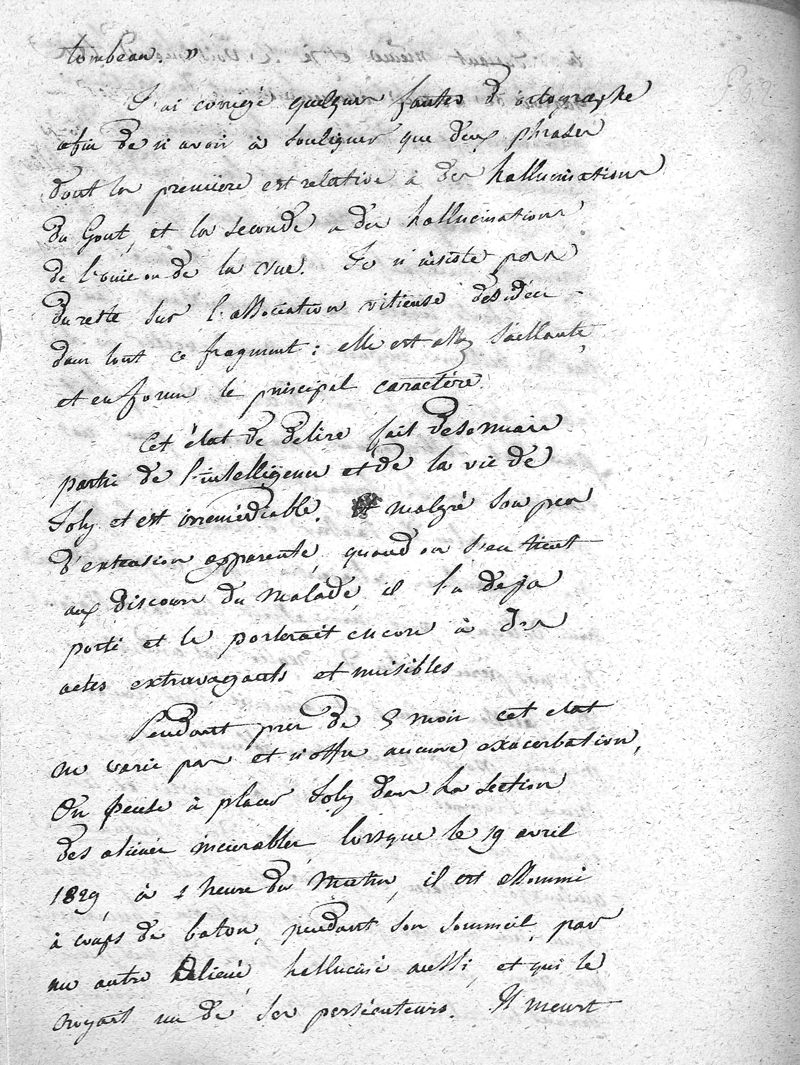 tombeau. "
J'ai corrigé quelques fautes d'ortographe
afin de n'avoir à souligner que deux phrases
dont la première est relative à des hallucinations
du Gout, et la seconde a des hallucinations
de l'ouie ou de la vue. Je n'insiste pas
du reste sur l'association vitieuse des idées
dans tout ce fragment : elle est assez saillante,
et en forme le principal caractère.
Cet état de délire fait désormais
partie de l'intelligence et de la vie de
Joly et est irremédiable. Et malgré son peu
d'extension apparente, quand on s'en tient
aux discours du malade, il l'a deja
porté et le porterait encore à des
actes extravagants et nuisibles
Pendant pres de 5 mois cet etat
ne varie pas et n'offre aucune exacerbation,
On pense à placer Joly dans la section
des aliénés incurables, lorsque le 19 avril
1829, à 1 heure du Matin, il est assommé
à coups de baton, pendant son sommeil, par
un autre aliéné, halluciné aussi, et qui le
croyait un de ses persécuteurs. Il meurt